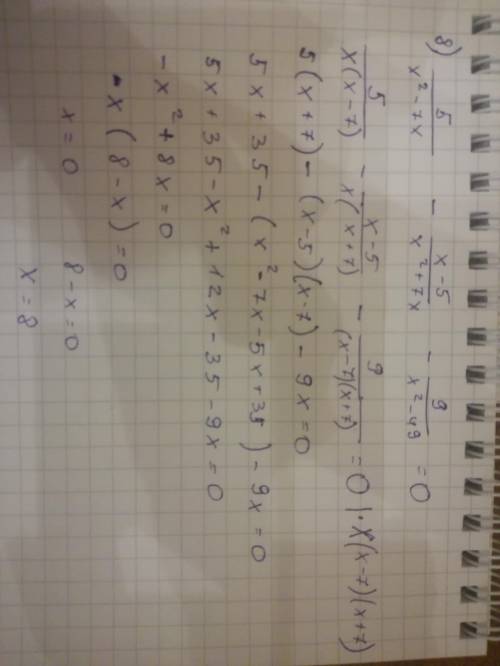 8) 5/(x² - 7x) - (x - 5)/(x² + 7x) - 9/(x² - 49) = 0
5/(x(x - 7)) - (x - 5)/(x(x + 7)) - 9/((x - 7)(x + 7)) = 0 | · x(x - 7)(x + 7)
5(x + 7) - (x - 5)(x - 7) - 9x = 0
5x + 35 - (x² - 7x - 5x + 35) - 9x = 0
5x + 35 - x² + 12x - 35 - 9x = 0
- x² + 8x = 0
- x (8 - x) = 0
x = 0 8 - x = 0
x = 8